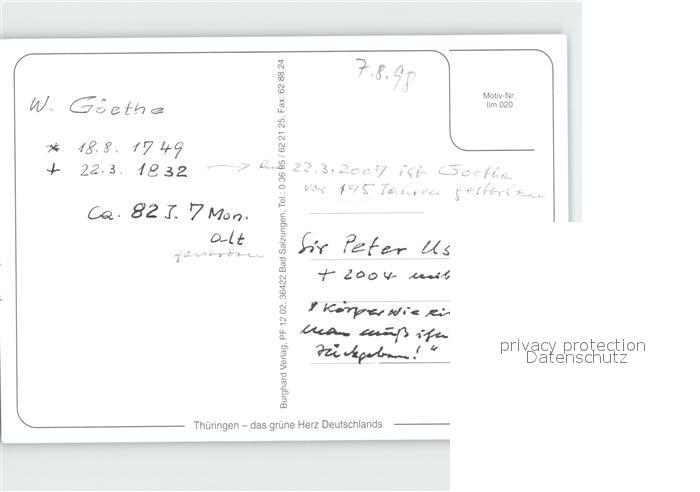 7.8.98
Motiv-Nr.
Ilm 020
W. Goethe
* 18.8. 1749
+ 22.3. 1832 → 22.3.2007 ist Goethe
vor 195 Jahren gestorben
Ca. 82 J. 7 Mon.
alt
Sir Peter Us
+ 2004 mit
"Körper wie ein
man muß ihn
zurückgeben!"
Burghard Verlag, PF 12 02, 36422 Bad Salzungen, Tel.: 0 36 95 / 62 21 25, Fax: 62 88 24
Thüringen – das grüne Herz Deutschlands
privacy protection
Datenschutz